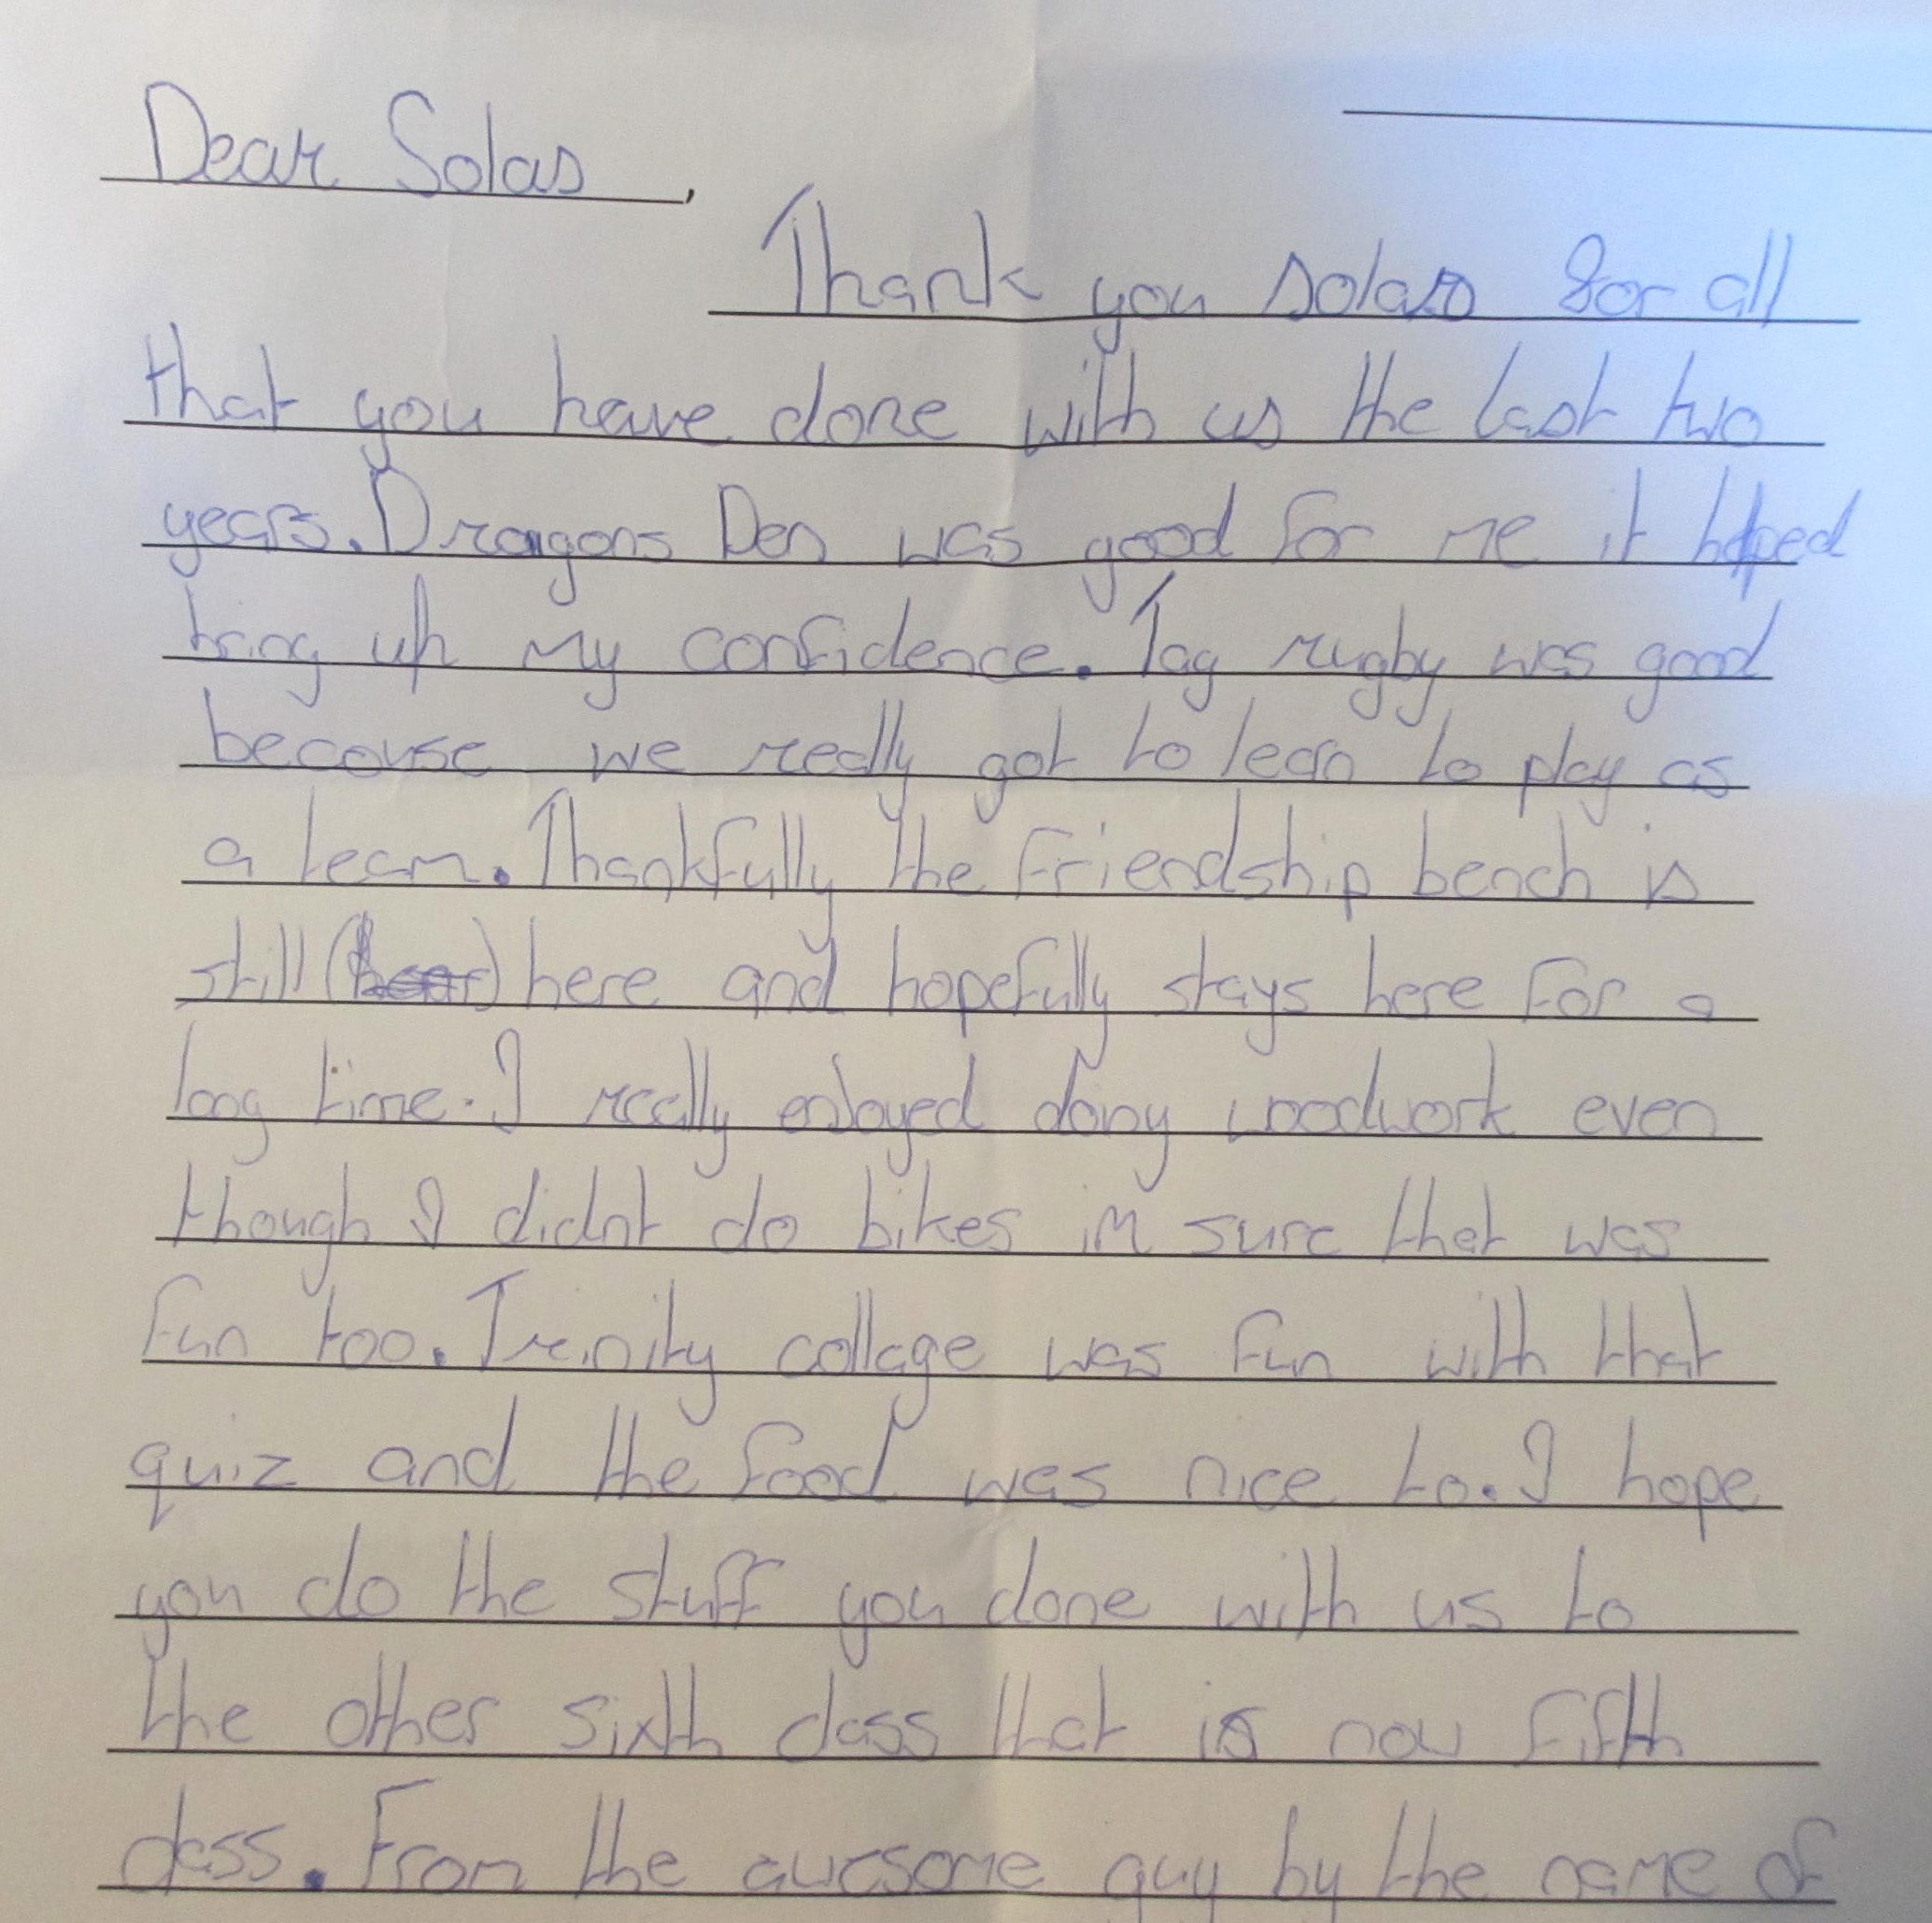 Dear Solas,
Thank you solas for all
that you have done with us the last two
years. Dragons Den was good for me it helped
bring up my confidence. Tag rugby was good
becouse we really got to learn to play as
a team. Thankfully the friendship bench is
still (hear) here and hopefully stays here for a
long time. I really enjoyed doing woodwork even
though I didnt do bikes im sure that was
fun too. Treinity collage was fun with that
quiz and the food was nice to. I hope
you do the stuff you done with us to
the other sixth class that is now fifth
class. From the awesome guy by the name of